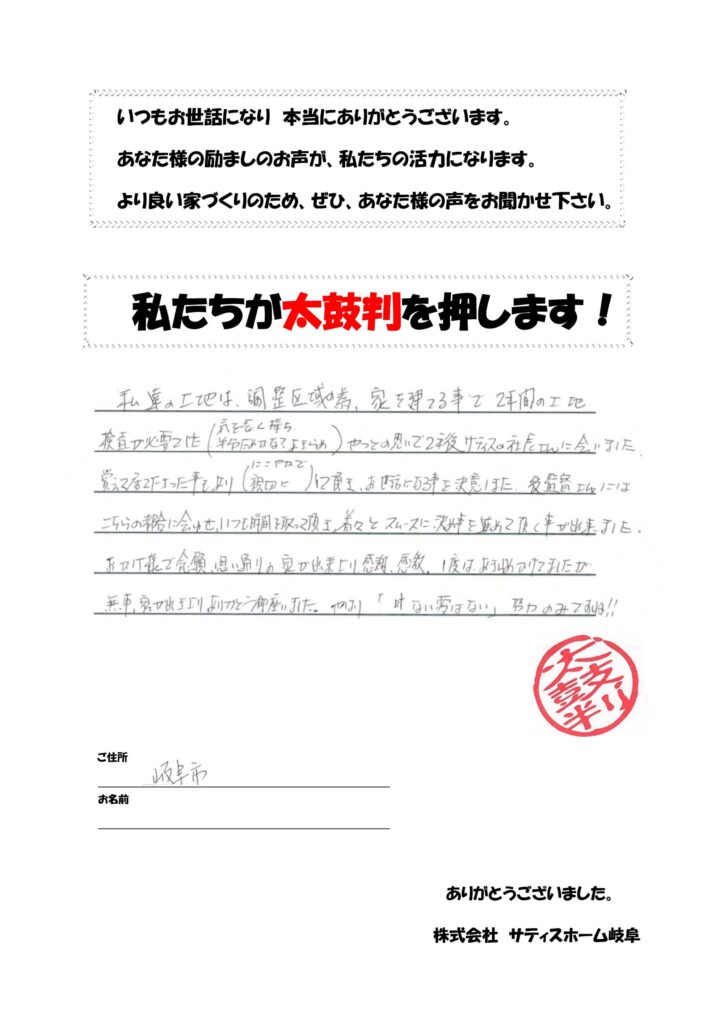 いつもお世話になり 本当にありがとうございます。
あなた様の励ましのお声が、私たちの活力になります。
より良い家づくりのため、ぜひ、あなた様の声をお聞かせ下さい。
私たちが太鼓判を押します！
私達の土地は、調整区域の為、家を建てる事で2年間の土地
検査が必要でした(気を長く持ち 半分だめかな?とあきらめ)やっとの思いで2年後サティスの社長さんに会いました。
覚えて下さった事もより(にこやかで 親切に)して頂き、お世話になる事を決意しました。後監督さんには
こちらの都合に合わせ、いつも時間を取って頂き、着々とスムーズに決め事を進めて頂く事が出来ました。
おかげ様で念願、思い通りの家が出来上り感謝、感激、1度はあきらめかけてましたが
無事、家が出来上りありがとう御座いました。やはり「叶ない夢はない」努力のみですね!!
太鼓判
ご住所
岐阜市
お名前
ありがとうございました。
株式会社 サティスホーム岐阜